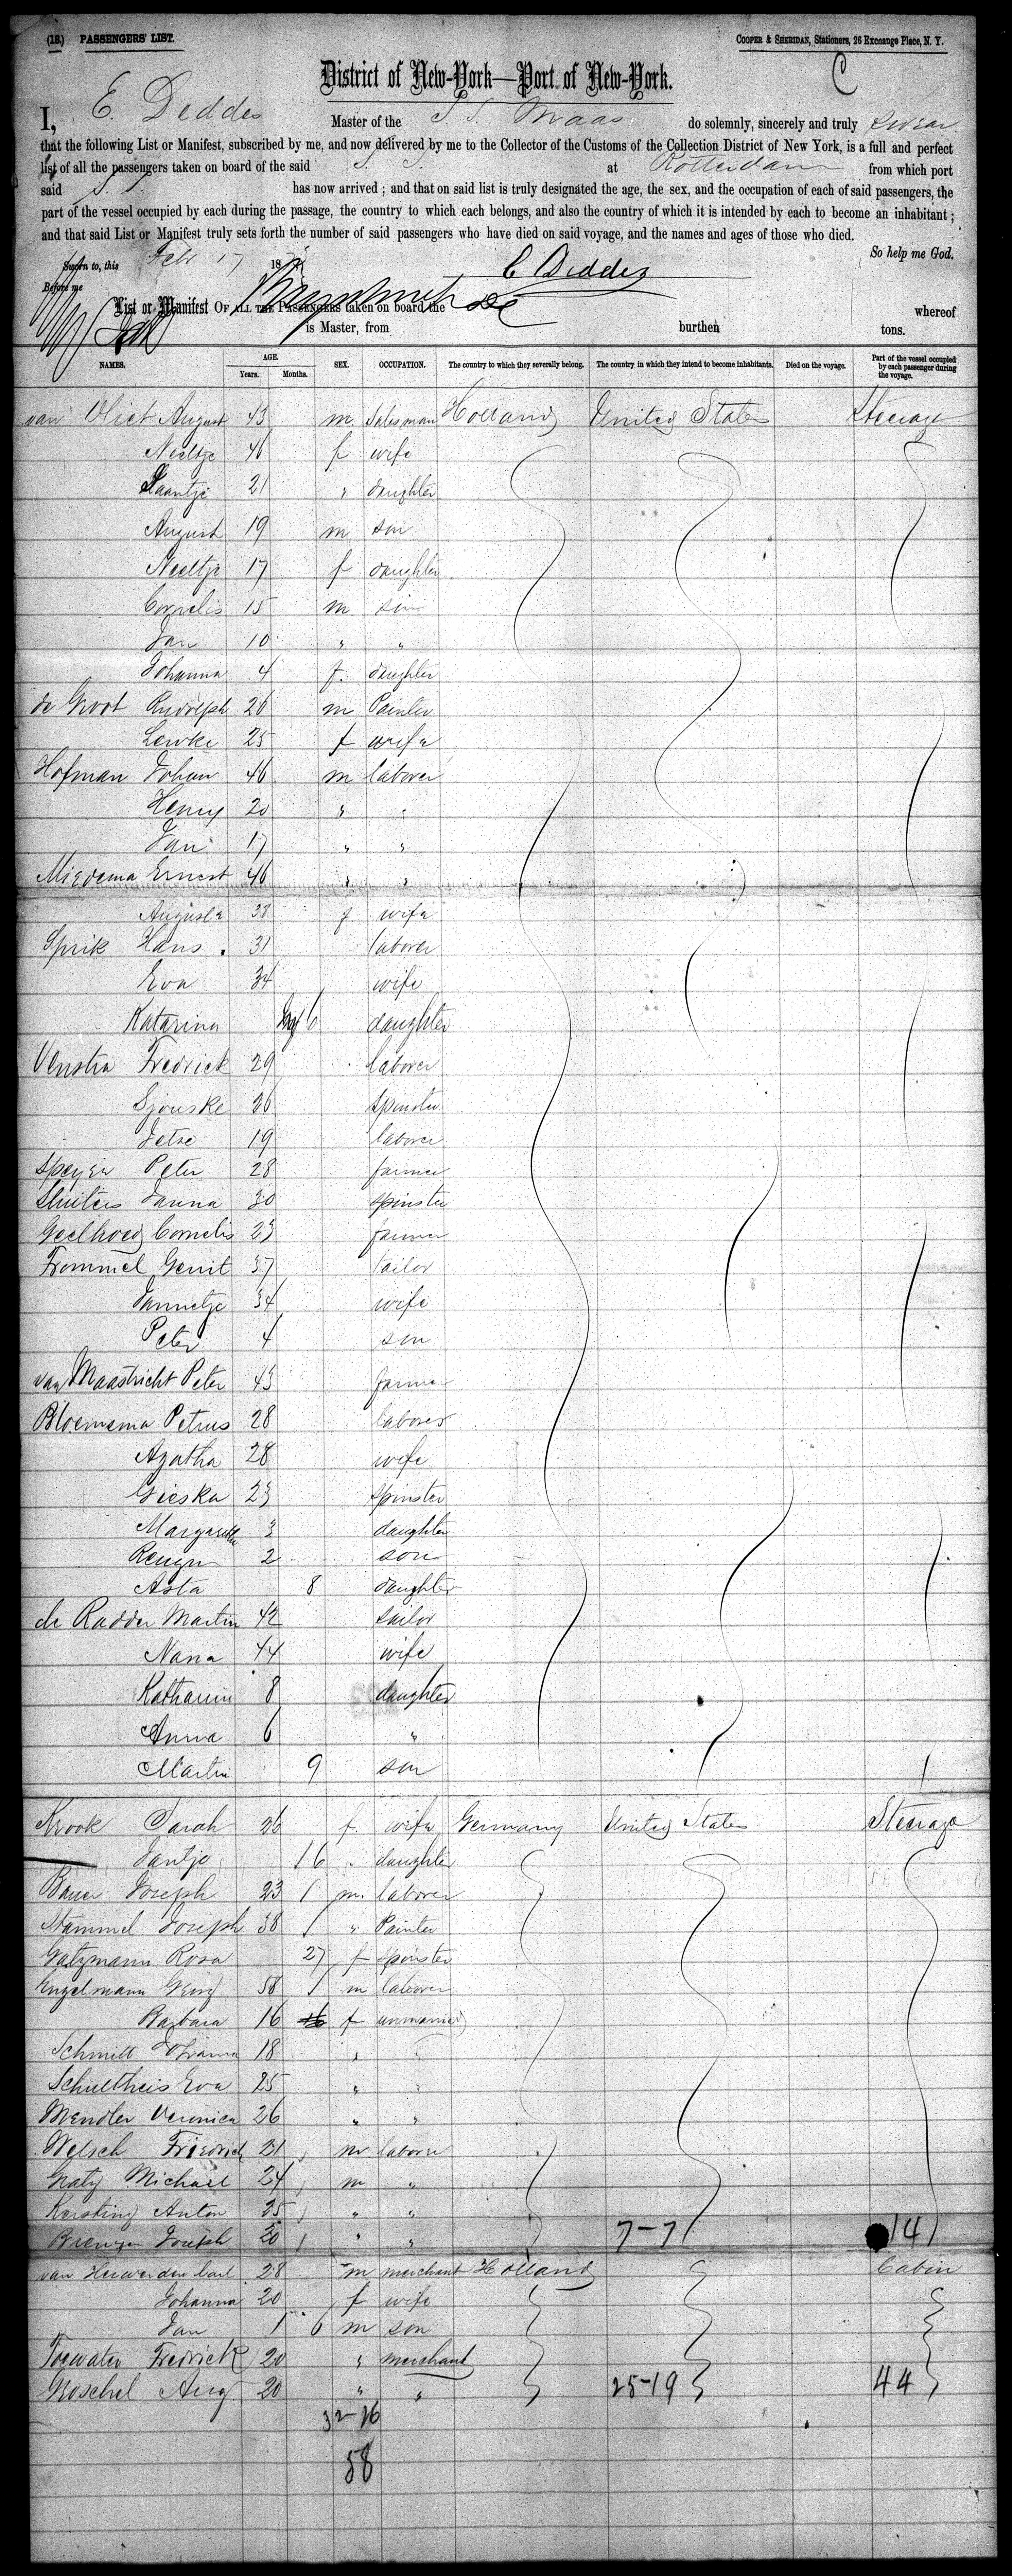 (18.) PASSENGERS' LIST. COOPER & SHERIDAN, Stationers, 26 Exchange Place, N. Y.
C
District of New-York—Port of New-York.
I, E. Deddes Master of the S. S. Maas do solemnly, sincerely and truly swear
that the following List or Manifest, subscribed by me, and now delivered by me to the Collector of the Customs of the Collection District of New York, is a full and perfect
list of all the passengers taken on board of the said S. S. at Rotterdam from which port
said S. S. has now arrived ; and that on said list is truly designated the age, the sex, and the occupation of each of said passengers, the
part of the vessel occupied by each during the passage, the country to which each belongs, and also the country of which it is intended by each to become an inhabitant ;
and that said List or Manifest truly sets forth the number of said passengers who have died on said voyage, and the names and ages of those who died.
So help me God.
Sworn to, this Feb 17 187
E Deddes
Before me
List or Manifest OF ALL THE PASSENGERS taken on board the whereof
is Master, from burthen tons.
NAMES. AGE. Years. Months. SEX. OCCUPATION. The country to which they severally belong. The country in which they intend to become inhabitants. Died on the voyage. Part of the vessel occupied by each passenger during the voyage.
van Vliet August 43 m. Salesman Holland United States Steerage
Neeltje 46 f wife
Jaantje 21 " daughter
August 19 m son
Neeltje 17 f daughter
Cornelis 15 m son
Jan 10 " "
Johanna 4 f. daughter
de Groot Rudolph 26 m Painter
Lewke 25 f wife
Hofman Johan 46 m laborer
Henry 20 " "
Jan 17 " "
Miedema Ernest 46 " "
Augusta 38 f wife
Sprik Hans 31 laborer
Eva 34 wife
Katarina 6 daughter
Venstra Fredrick 29 laborer
Sjouske 26 spinster
Jetse 19 laborer
Speyer Peter 28 farmer
Sluiters Janna 30 spinster
Geelhoed Cornelis 23 farmer
Frommel Gerrit 37 tailor
Jannetje 34 wife
Peter 4 son
van Maastricht Peter 43 farmer
Bloemema Petrus 28 laborer
Agatha 28 wife
Gieska 23 spinster
Margaretha 3 daughter
2 son
Asta 8 daughter
de Radder Martin 42 sailor
Nana 44 wife
Katharin 8 daughter
Anna 6 "
Martin 9 son
Krook Sarah 26 f. wife Germany United States Steerage
Jantje 16 " daughter
Bauer Joseph 23 1 m. laborer
Stammel Joseph 38 1 " Painter
Gutzmann Rosa 27 f spinster
Engelmann Georg 58 1 m laborer
Barbara 16 f unmarried
Schmitt 18 " "
Schultheis Eva 25 " "
Mendler Veronica 26 " "
Welsch Friedrich 21 m laborer
Michael 24 m "
Kersting Anton 25 " "
Joseph 20 1 " " 7-7 14
van Herwerden Carl 28 m merchant Holland Cabin
Johanna 20 f wife
Jan 1 6 m son
Toewater Fredrick 20 " merchant
Groschel Aug 20 " " 25-19 44
32-26
58